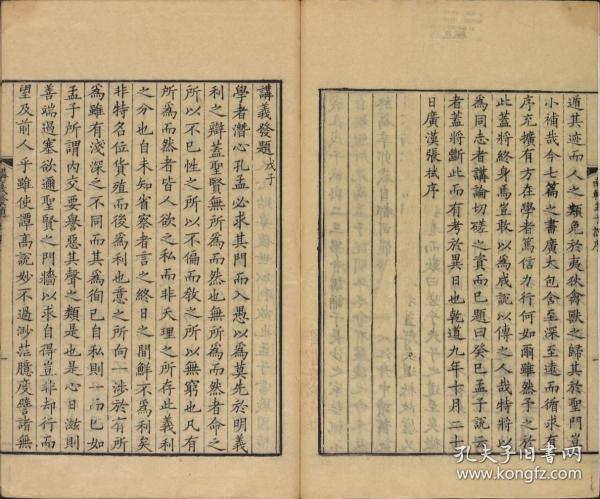 道其迹而人之類免於夷狄禽獸之歸其於聖門豈
小補哉今七篇之書廣大包含至深至遠而循求有
序充擴有方在學者篤信力行何如爾雖然予之於
此蓋將終身焉豈敢以為成說以傳之人哉特將以
為同志者講論切磋之資而已題曰癸巳孟子說云
者蓋將斷此而有考於異日也乾道九年十月二十
日廣漢張栻序
講義發題戊子
學者潛心孔孟必求其門而入愚以為莫先於明義
利之辯蓋聖賢無所為而然也無所為而然者命之
所以不已性之所以不偏而敎之所以無窮也凡有
所為而然者皆人欲之私而非天理之所存此義利
之分也自未知省察者言之終日之間鮮不為利矣
非特名位貨殖而後為利也意之所向一涉於有所
為雖有淺深之不同而其為徇已自私則一而已如
孟子所謂內交要譽惡其聲之類是也是心日滋則
善端遏塞欲邇聖賢之門牆以求自得豈非却行而
望及前人乎雖使譚高說妙不過渺茫臆度譬諸無
孔夫子旧书网
www.kongfz.com